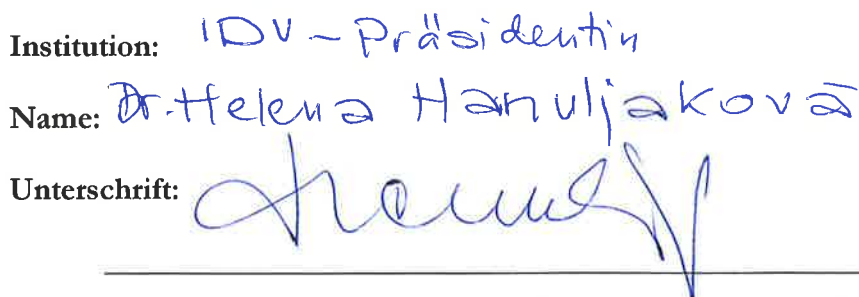 Institution: IDV - Präsidentin
Name: Dr. Helena Hanuljaková
Unterschrift: